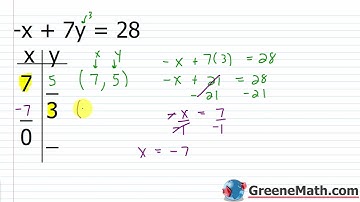 3
-x + 7y = 28
x y
x y
7 5 (7, 5)
-7 3 (
0 _
-x + 7(3) = 28
-x + 21 = 28
-21 -21
-x = 7
-1 -1
x = -7
GreeneMath.com